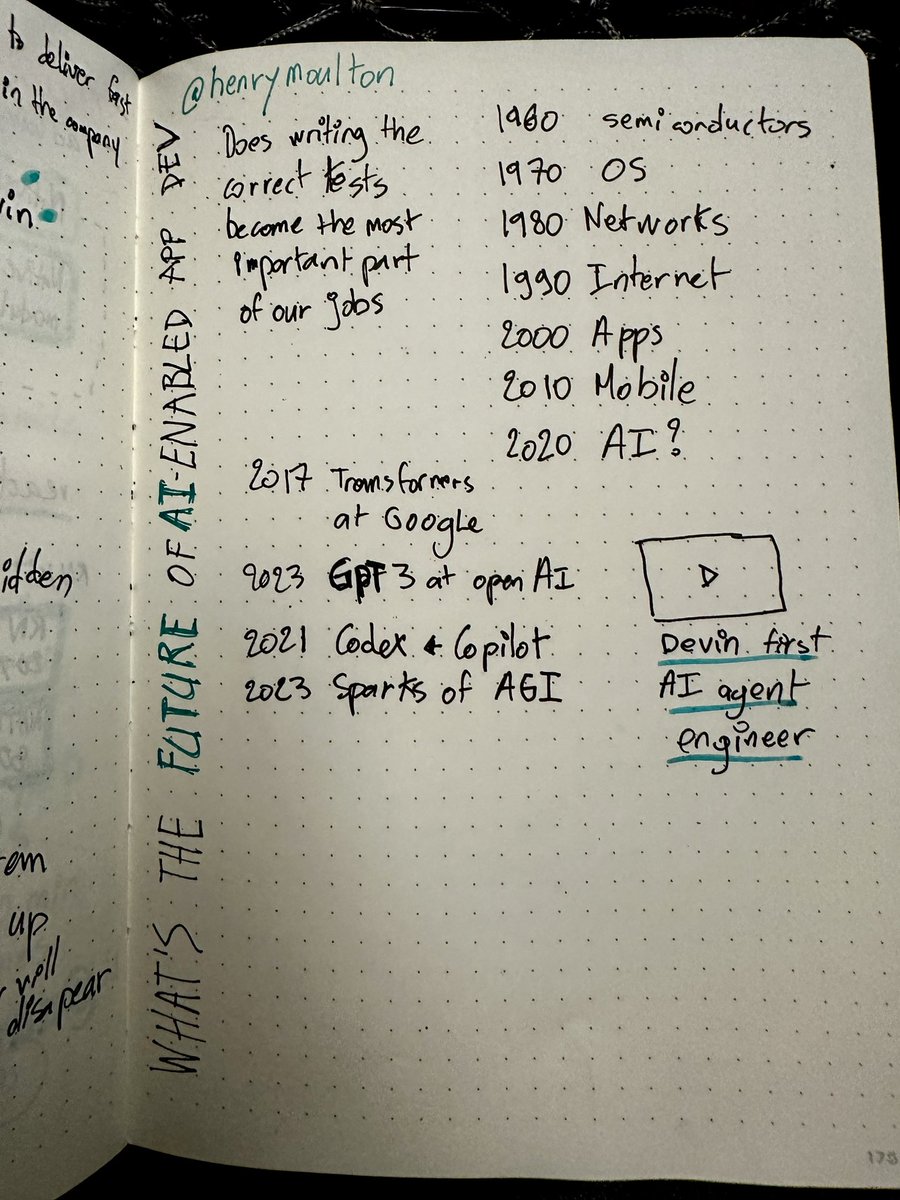 to deliver fast
in the company
idden
up
will
disapear
WHAT'S THE FUTURE OF AI-ENABLED APP DEV
@henrymoulton
Does writing the
correct tests
become the most
important part
of our jobs
1960 semiconductors
1970 OS
1980 Networks
1990 Internet
2000 Apps
2010 Mobile
2020 AI?
2017 Transformers
at Google
2023 GPT 3 at open AI
2021 Codex + Copilot
2023 Sparks of AGI
Devin first
AI agent
engineer